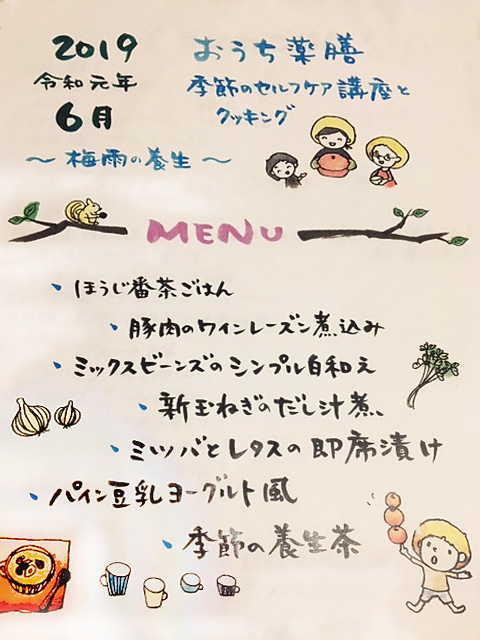 2019
令和元年
6月
～梅雨の養生～
おうち薬膳
季節のセルフケア講座と
クッキング
MENU
・ほうじ番茶ごはん
・豚肉のワインレーズン煮込み
・ミックスビーンズのシンプル白和え
・新玉ねぎのだし汁煮、
・ミツバとレタスの即席漬け
・パイン豆乳ヨーグルト風
・季節の養生茶